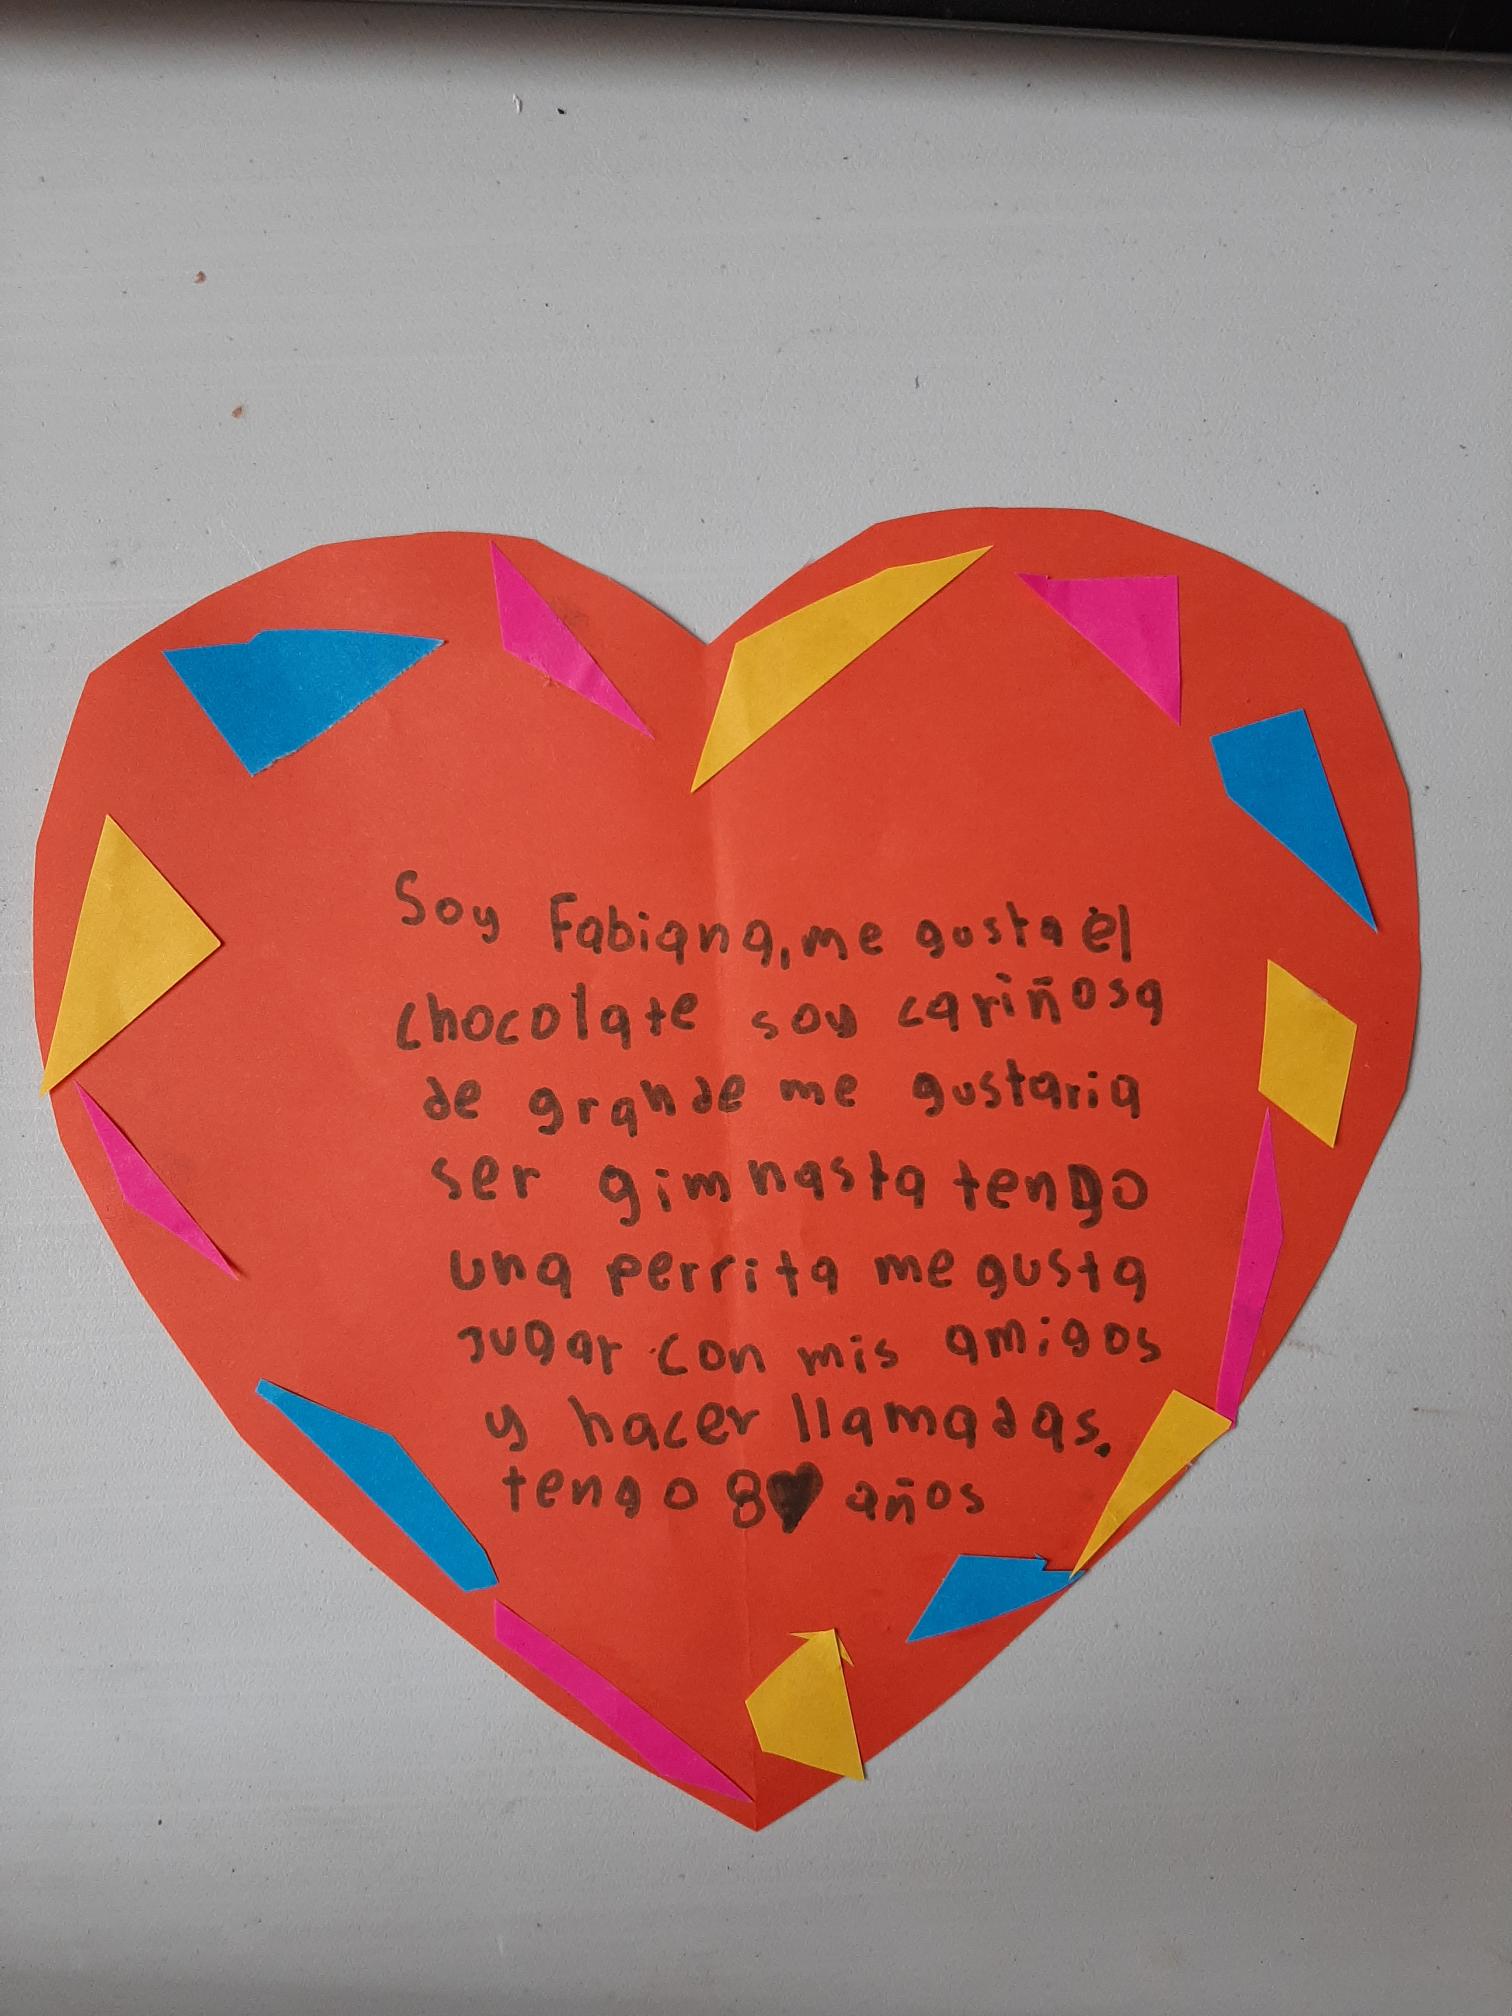 Soy Fabiana, me gusta el
chocolate soy cariñosa
de grande me gustaria
ser gimnasta tengo
una perrita me gusta
jugar con mis amigos
y hacer llamadas.
tengo 8♥ años